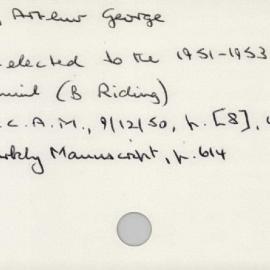 , Arthur George
elected to the 1951-1953
(B Riding)
.C.A.M., 9/12/50, p.[8],
Manuscript, p.614